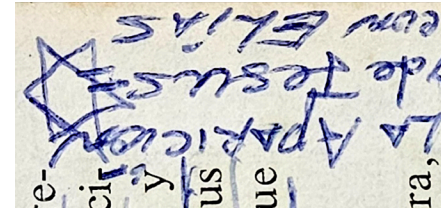 LA APARICION
de JESUS
con ELIAS
re-
ci-
y
us
que
ra,